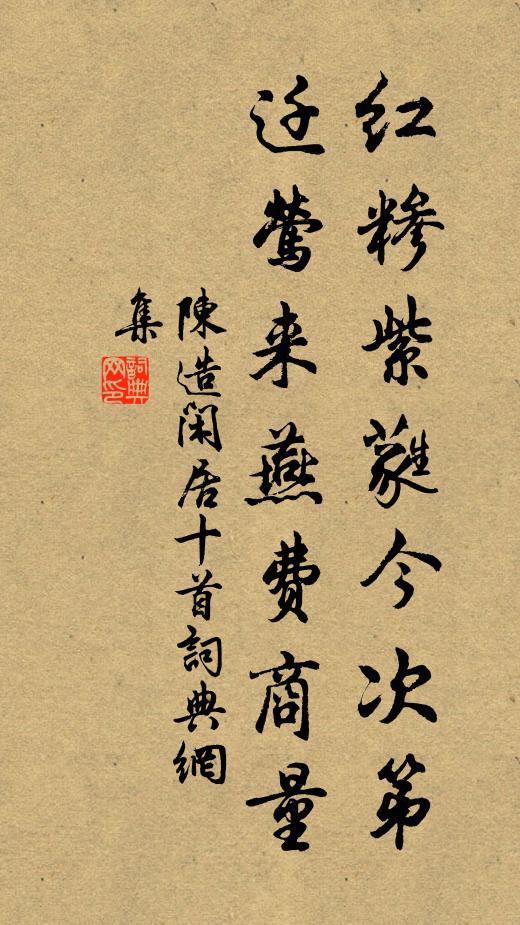 红糁紫蕤今次第
迁莺来燕费商量
陳造闲居十首詞典網
集
詞典网印